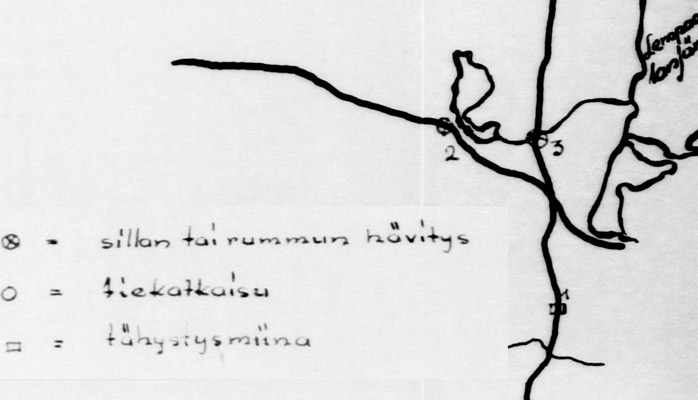 2
3
⊗ - sillan tai rummun hävitys
○ = tiekatkaisu
1
▭ = tähystysmiina